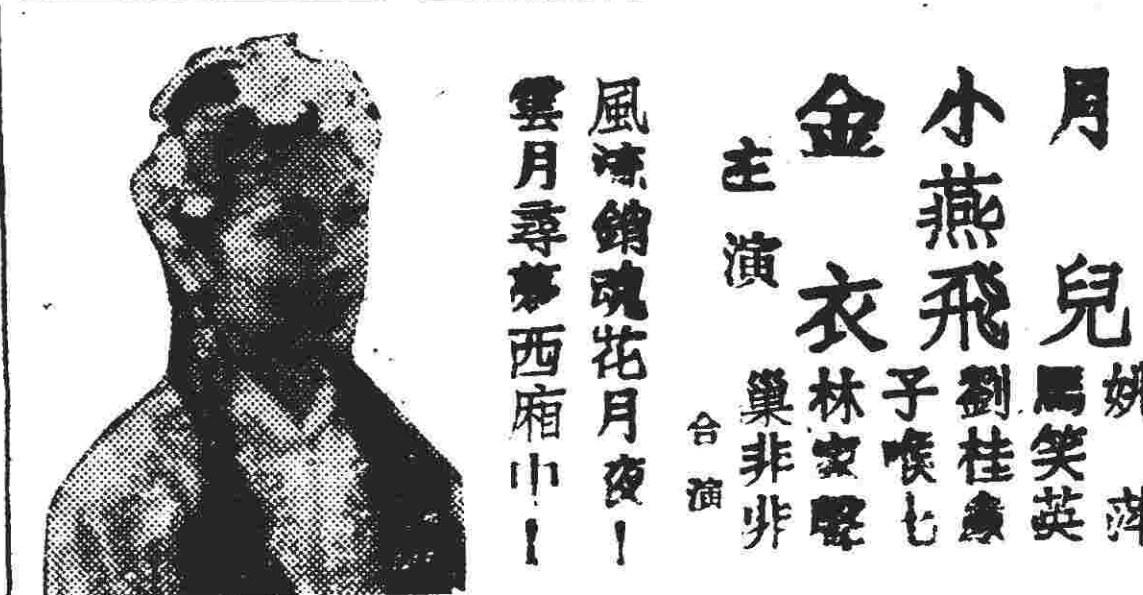 月兒
小燕飛
金衣
主演
姚萍
馬笑英
劉桂康
子喉七
林家聲
巢非非
合演
風流銷魂花月夜！
雲月尋夢西廂中！